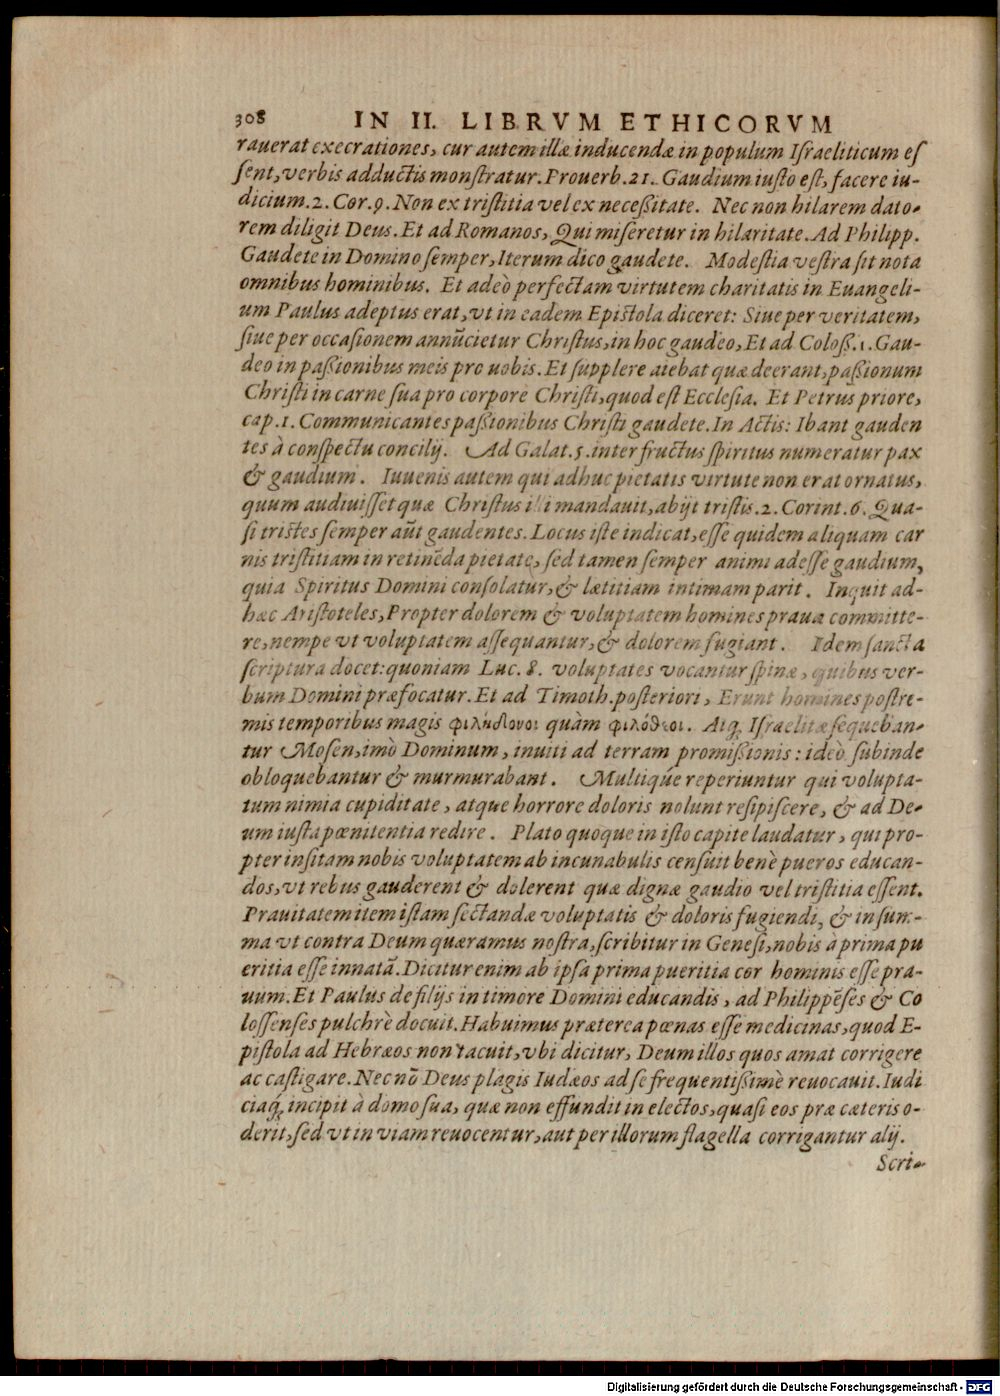 308 IN II. LIBRVM ETHICORVM
rauerat execrationes, cur autem illæ inducendæ in populum Iſraeliticum eſ
ſent, verbis adductis monſtratur. Prouerb. 21. Gaudium iuſto eſt, facere iu-
dicium. 2. Cor. 9. Non ex triſtitia vel ex neceßitate. Nec non hilarem dato-
rem diligit Deus. Et ad Romanos, Qui miſeretur in hilaritate. Ad Philipp.
Gaudete in Domino ſemper, Iterum dico gaudete. Modeſtia veſtra ſit nota
omnibus hominibus. Et adeò perfectam virtutem charitatis in Euangeli-
um Paulus adeptus erat, vt in eadem Epiſtola diceret: Siue per veritatem,
ſiue per occaſionem annũcietur Chriſtus, in hoc gaudeo, Et ad Coloß. 1. Gau-
deo in paßionibus meis pro uobis. Et ſupplere aiebat quæ deerant, paßionum
Chriſti in carne ſua pro corpore Chriſti, quod eſt Eccleſia. Et Petrus priore,
cap. 1. Communicantes paßionibus Chriſti gaudete. In Actis: Ibant gauden
tes à conſpectu concilij. Ad Galat. 5. inter fructus ſpiritus numeratur pax
& gaudium. Iuuenis autem qui adhuc pietatis virtute non erat ornatus,
quum audiuiſſet quæ Chriſtus illi mandauit, abijt triſtis. 2. Corint. 6. Qua-
ſi triſtes ſemper aũt gaudentes. Locus iſte indicat, eſſe quidem aliquam car
nis triſtitiam in retinẽda pietate, ſed tamen ſemper animi adeſſe gaudium,
quia Spiritus Domini conſolatur, & lætitiam intimam parit. Inquit ad-
hæc Ariſtoteles, Propter dolorem & voluptatem homines praua committe-
re, nempe vt voluptatem aſſequantur, & dolorem fugiant. Idem ſancta
ſcriptura docet: quoniam Luc. 8. voluptates vocantur ſpinæ, quibus ver-
bum Domini præfocatur. Et ad Timoth. poſteriori, Erunt homines poſtre-
mis temporibus magis φιλήδονοι quàm φιλόθεοι. Atq; Iſraelitæ ſequeban-
tur Moſen, imò Dominum, inuiti ad terram promißionis: ideò ſubinde
obloquebantur & murmurabant. Multiq́ue reperiuntur qui volupta-
tum nimia cupiditate, atque horrore doloris nolunt reſipiſcere, & ad De-
um iuſta pœnitentia redire. Plato quoque in iſto capite laudatur, qui pro-
pter inſitam nobis voluptatem ab incunabulis cenſuit benè pueros educan-
dos, vt rebus gauderent & dolerent quæ dignæ gaudio vel triſtitia eſſent.
Prauitatem item iſtam ſectandæ voluptatis & doloris fugiendi, & in ſum-
ma vt contra Deum quæramus noſtra, ſcribitur in Geneſi, nobis à prima pu
eritia eſſe innatã. Dicitur enim ab ipſa prima pueritia cor hominis eſſe pra-
uum. Et Paulus de filijs in timore Domini educandis, ad Philippẽſes & Co
loſſenſes pulchrè docuit. Habuimus præterea pœnas eſſe medicinas, quod E-
piſtola ad Hebræos non tacuit, vbi dicitur, Deum illos quos amat corrigere
ac caſtigare. Nec nõ Deus plagis Iudæos ad ſe frequentißimè reuocauit. Iudi
ciaq́; incipit à domo ſua, quæ non effundit in electos, quaſi eos præ cæteris o-
derit, ſed vt in viam reuocentur, aut per illorum flagella corrigantur alij.
Scri-
Digitalisierung gefördert durch die Deutsche Forschungsgemeinschaft - DFG